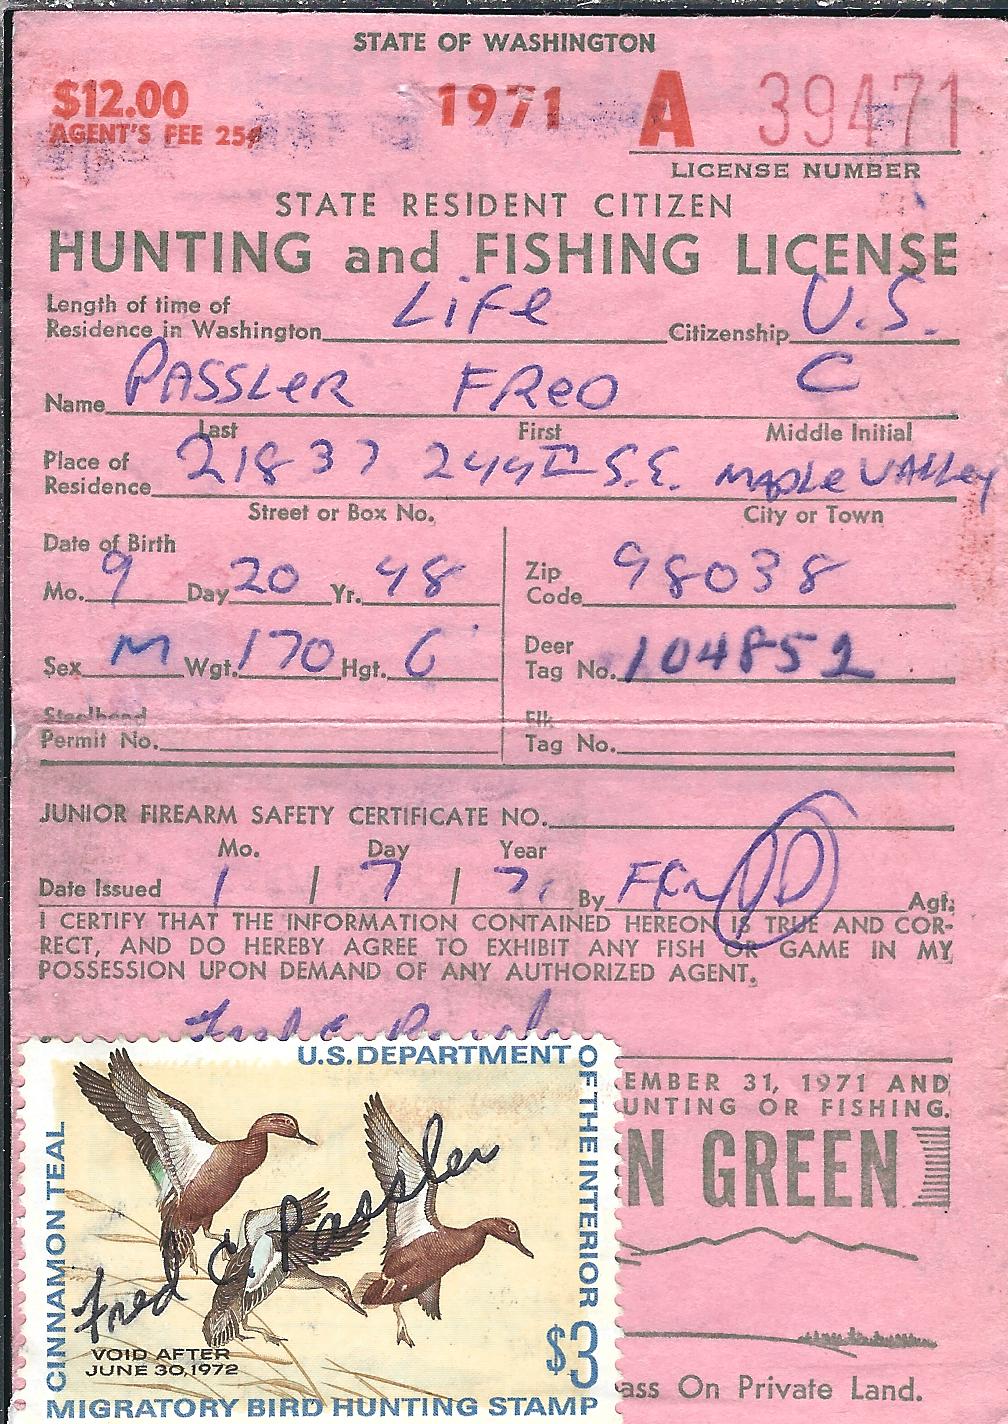 STATE OF WASHINGTON
$12.00 1971 A 39471
AGENT'S FEE 25¢
LICENSE NUMBER
STATE RESIDENT CITIZEN
HUNTING and FISHING LICENSE
Length of time of
Residence in Washington Life Citizenship U.S.
Name PASSLeR FReD C
Last First Middle Initial
Place of
Residence 21837 244th S.E. MAPLe VALLey
Street or Box No. City or Town
Date of Birth
Mo. 9 Day 20 Yr. 48
Zip
Code 98038
Sex M Wgt. 170 Hgt. 6'
Deer
Tag No. 104852
Steelhead
Permit No.
Elk
Tag No.
JUNIOR FIREARM SAFETY CERTIFICATE NO.
Mo. Day Year
Date Issued 1 / 7 / 71 By Agt.
I CERTIFY THAT THE INFORMATION CONTAINED HEREON IS TRUE AND COR-
RECT, AND DO HEREBY AGREE TO EXHIBIT ANY FISH OR GAME IN MY
POSSESSION UPON DEMAND OF ANY AUTHORIZED AGENT.
EMBER 31, 1971 AND
UNTING OR FISHING.
N GREEN
ass On Private Land.
U.S. DEPARTMENT OF THE INTERIOR
CINNAMON TEAL
Fred C. Passler
VOID AFTER
JUNE 30, 1972
$3
MIGRATORY BIRD HUNTING STAMP